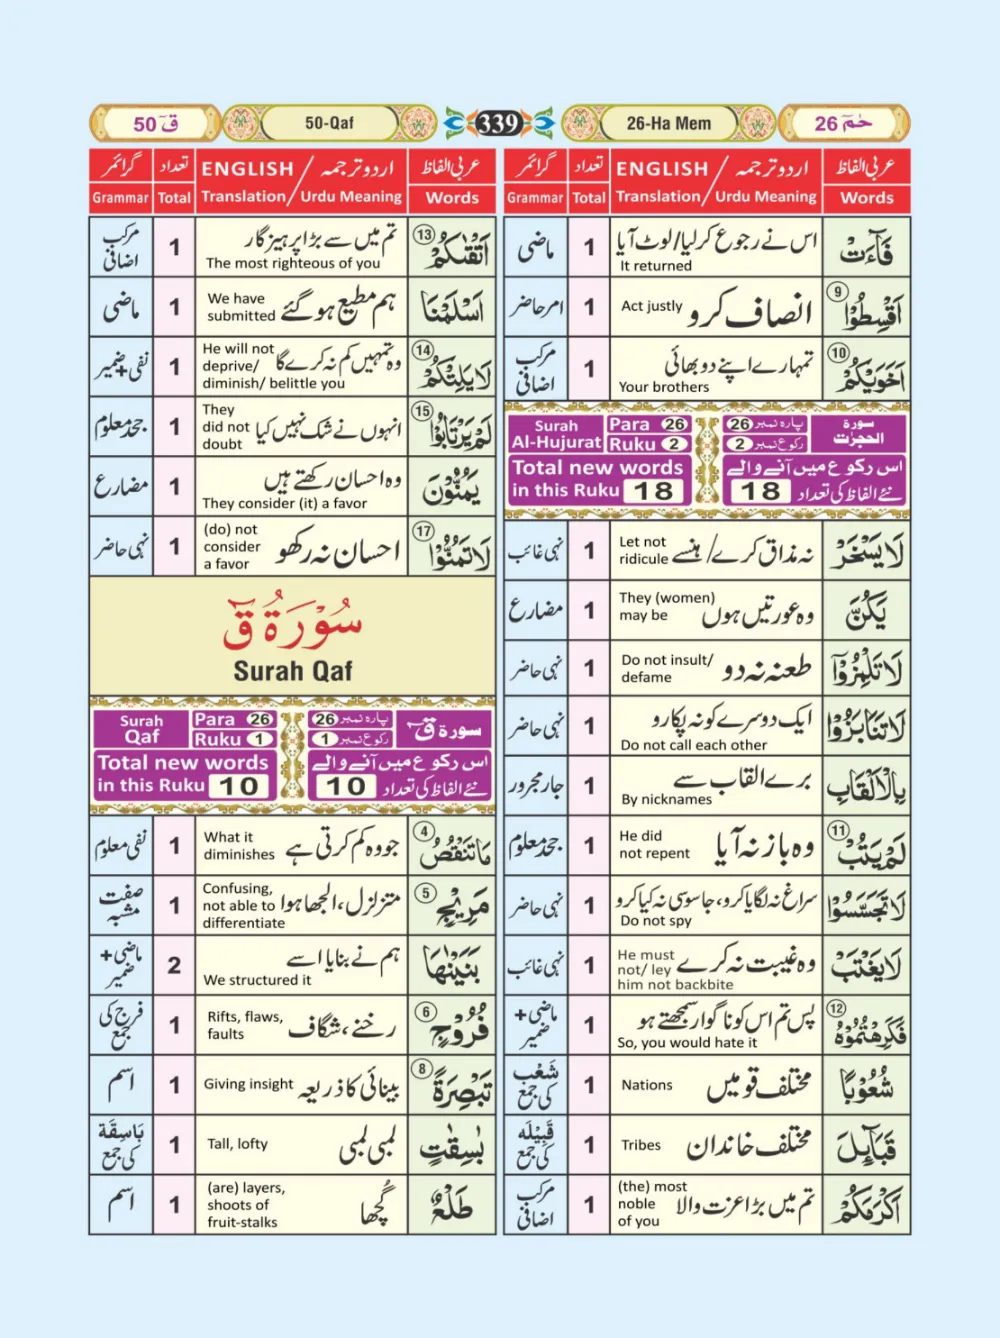 حٰمٓ 26
26-Ha Mem
339
50-Qaf
قٓ 50
عربی الفاظ
اردو ترجمہ / ENGLISH
تعداد
گرائمر
Words
Translation / Urdu Meaning
Total
Grammar
فَآءَتْ
اس نے رجوع کر لیا/لوٹ آیا
It returned
1
ماضی
اَقْسِطُوْا ⑨
انصاف کرو
Act justly
1
امر حاضر
اَخَوَيْكُمْ ⑩
تمہارے اپنے دو بھائی
Your brothers
1
مرکب اضافی
سورة الحجرٰت
پارہ نمبر 26
رکوع نمبر 2
Surah Al-Hujurat
Para 26
Ruku 2
اس رکوع میں آنے والے
نئے الفاظ کی تعداد 18
Total new words
in this Ruku 18
لَا يَسْخَرْ
نہ مذاق کرے/ ہنسے
Let not
ridicule
1
نہی غائب
يَكُنَّ
وہ عورتیں ہوں
They (women)
may be
1
مضارع
لَا تَلْمِزُوْٓا
طعنہ نہ دو
Do not insult/
defame
1
نہی حاضر
لَا تَنَابَزُوْا
ایک دوسرے کو نہ پکارو
Do not call each other
1
نہی حاضر
بِالْاَلْقَابِ
برے القاب سے
By nicknames
1
جار مجرور
لَمْ يَتُبْ ⑪
وہ باز نہ آیا
He did
not repent
1
جحد معلوم
لَا تَجَسَّسُوْا
سراغ نہ لگایا کرو، جاسوسی نہ کیا کرو
Do not spy
1
نہی حاضر
لَا يَغْتَبْ
وہ غیبت نہ کرے
He must
not/ ley
him not backbite
1
نہی غائب
فَكَرِهْتُمُوْهُ ⑫
پس تم اس کو ناگوار سمجھتے ہو
So, you would hate it
1
ماضی+ ضمیر
شُعُوْبًا
مختلف قومیں
Nations
1
شَعْب کی جمع
قَبَآئِلَ
مختلف خاندان
Tribes
1
قَبِيْلَه کی جمع
اَكْرَمَكُمْ
تم میں بڑا عزت والا
(the) most
noble
of you
1
مرکب اضافی
عربی الفاظ
اردو ترجمہ / ENGLISH
تعداد
گرائمر
Words
Translation / Urdu Meaning
Total
Grammar
اَتْقٰىكُمْ ⑬
تم میں سے بڑا پرہیز گار
The most righteous of you
1
مرکب اضافی
اَسْلَمْنَا
ہم مطیع ہو گئے
We have
submitted
1
ماضی
لَا يَلِتْكُمْ ⑭
وہ تمہیں کم نہ کرے گا
He will not
deprive/
diminish/ belittle you
1
نفی+ضمیر
لَمْ يَرْتَابُوْا ⑮
انہوں نے شک نہیں کیا
They
did not
doubt
1
جحد معلوم
يَمُنُّوْنَ
وہ احسان رکھتے ہیں
They consider (it) a favor
1
مضارع
لَا تَمُنُّوْا ⑰
احسان نہ رکھو
(do) not
consider
a favor
1
نہی حاضر
سُوْرَةُ قٓ
Surah Qaf
سورة قٓ
پارہ نمبر 26
رکوع نمبر 1
Surah Qaf
Para 26
Ruku 1
اس رکوع میں آنے والے
نئے الفاظ کی تعداد 10
Total new words
in this Ruku 10
مَا تَنْقُصُ ④
جو وہ کم کرتی ہے
What it
diminishes
1
نفی معلوم
مَرِيْجٍ ⑤
متزلزل، الجھا ہوا
Confusing,
not able to
differentiate
1
صفت مشبہ
بَنَيْنٰهَا
ہم نے بنایا اسے
We structured it
2
ماضی+ ضمیر
فُرُوْجٍ ⑥
رخنے، شگاف
Rifts, flaws,
faults
1
فرج کی جمع
تَبْصِرَةً ⑧
بینائی کا ذریعہ
Giving insight
1
اسم
بٰسِقٰتٍ
لمبی لمبی
Tall, lofty
1
بَاسِقَة کی جمع
طَلْعٌ
گُچھا
(are) layers,
shoots of
fruit-stalks
1
اسم